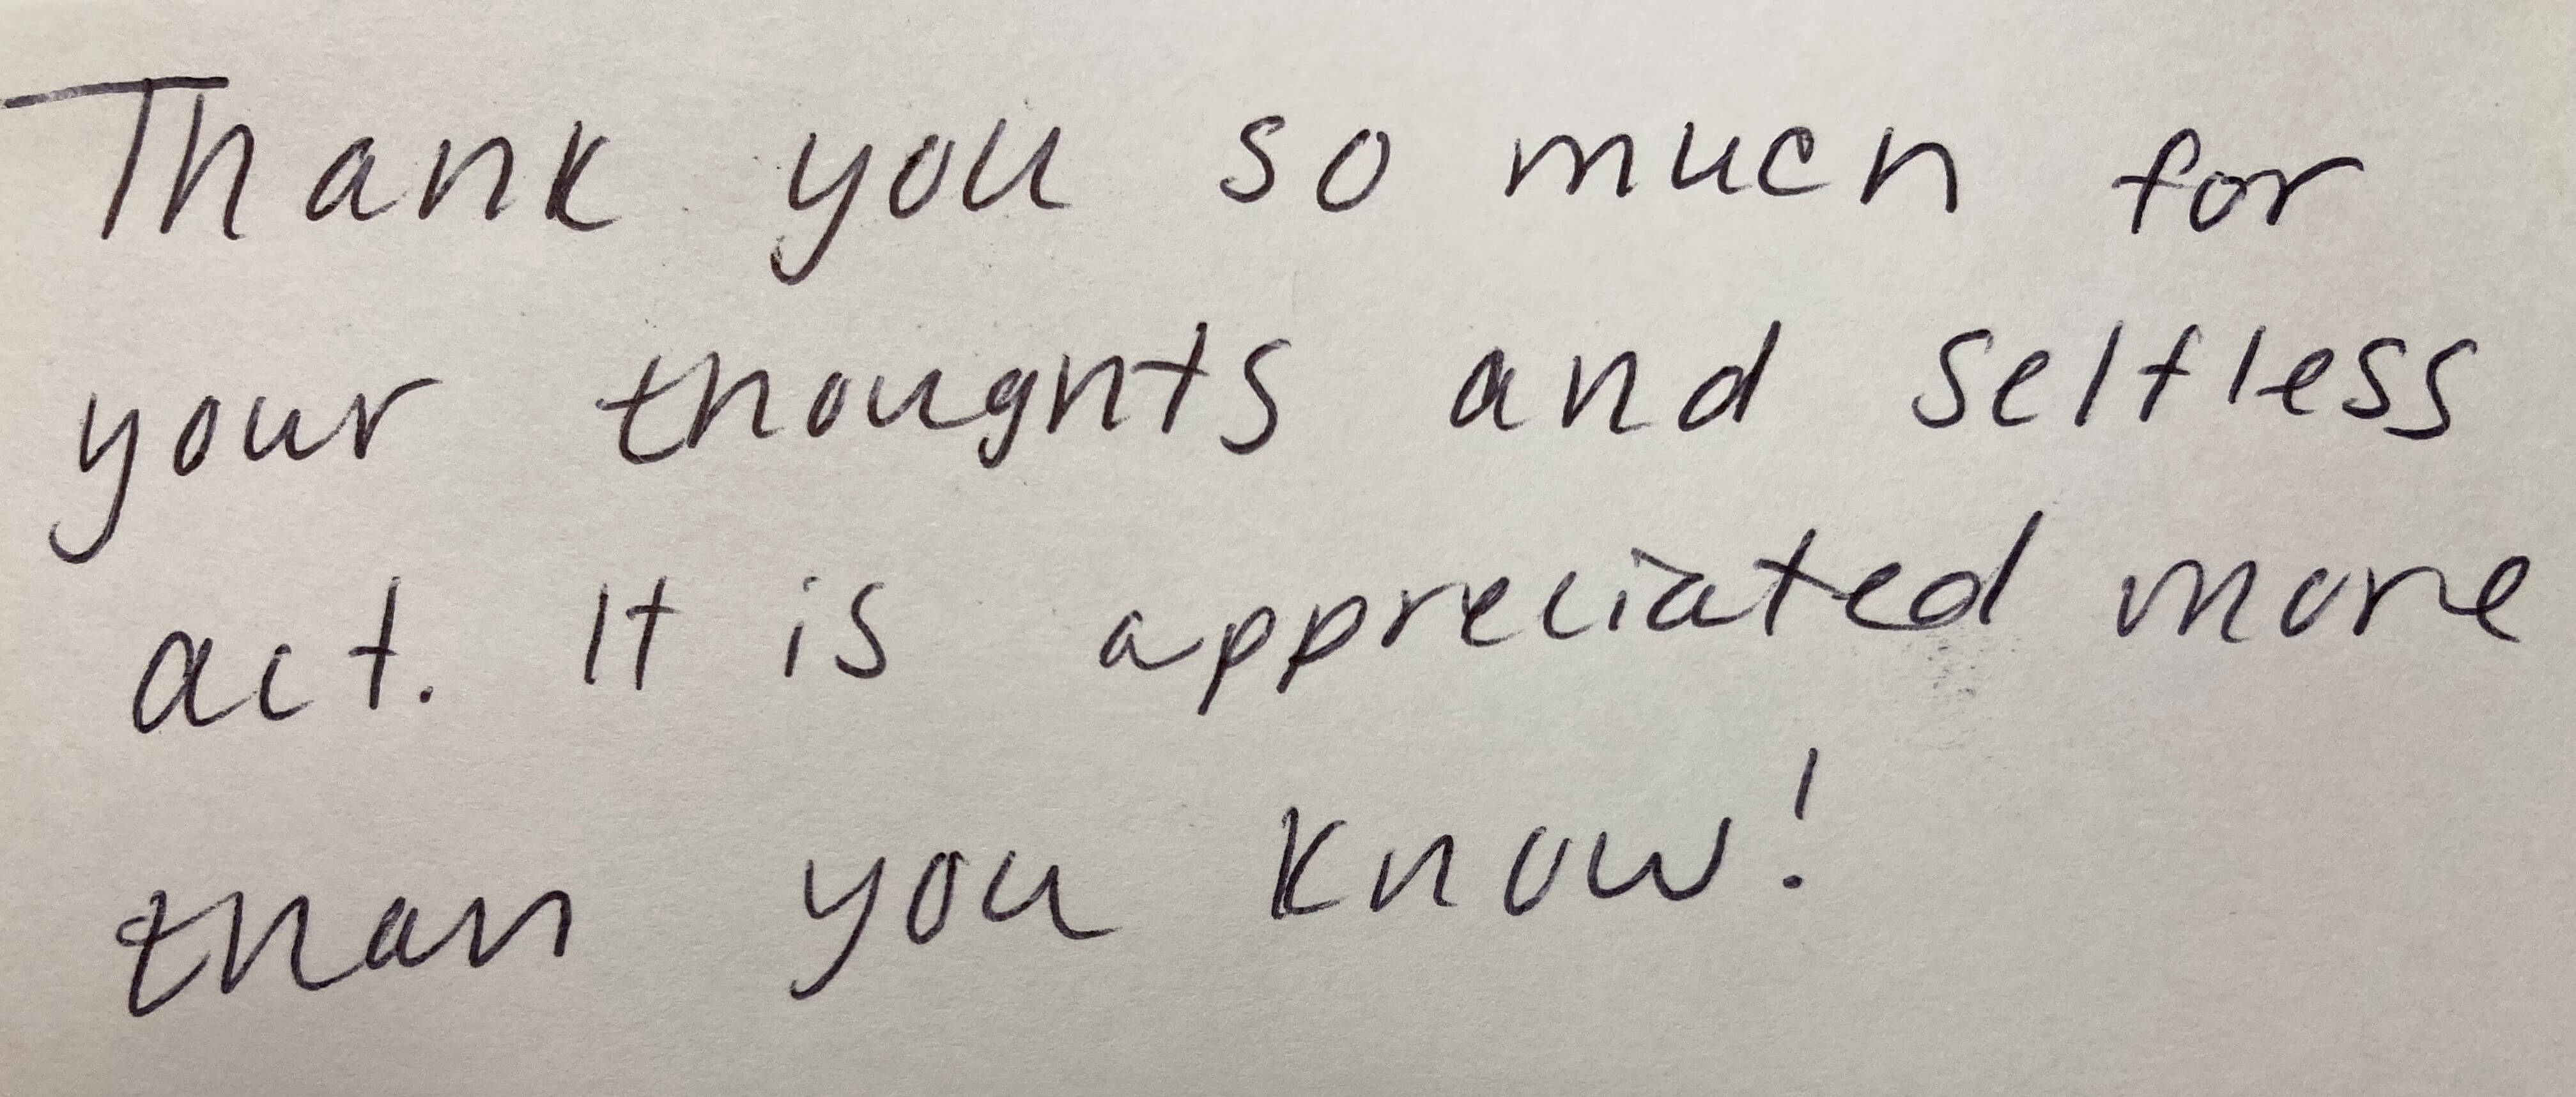 Thank you so much for
your thoughts and selfless
act. It is appreciated more
than you know!